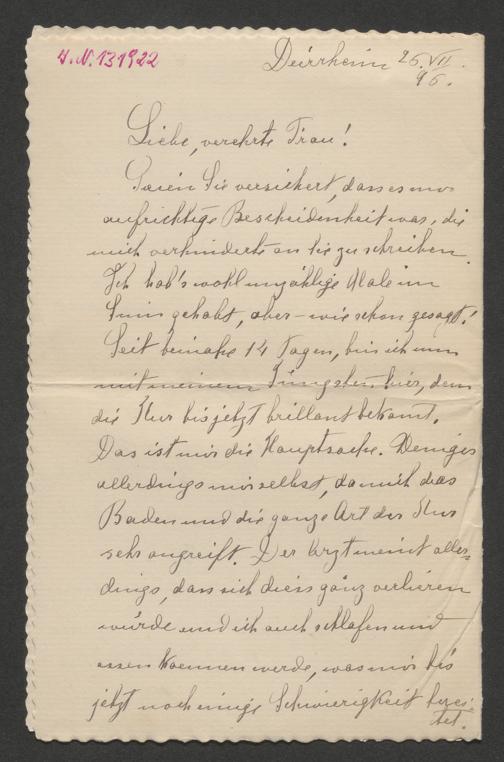 J.N. 131922
Dürrheim 26. VII.
96.
Liebe, verehrte Frau!
Seien Sie versichert, dass es nur
aufrichtige Bescheidenheit war, die
mich verhinderte an Sie zu schreiben.
Ich hab's wohl unzählige Male im
Sinn gehabt, aber – wie schon gesagt!
Seit beinahe 14 Tagen, bin ich nun
mit meinem Jüngsten hier, dem
die Kur bis jetzt brillant bekomt.
Das ist mir die Hauptsache. Weniger
allerdings mir selbst, da mich das
Baden und die ganze Art der Kur
sehr angreift. Der Arzt meint aller-
dings, dass sich diess ganz verlieren
würde und ich auch schlafen und
essen koennen werde, was mir bis
jetzt noch einige Schwierigkeit berei-
tet.